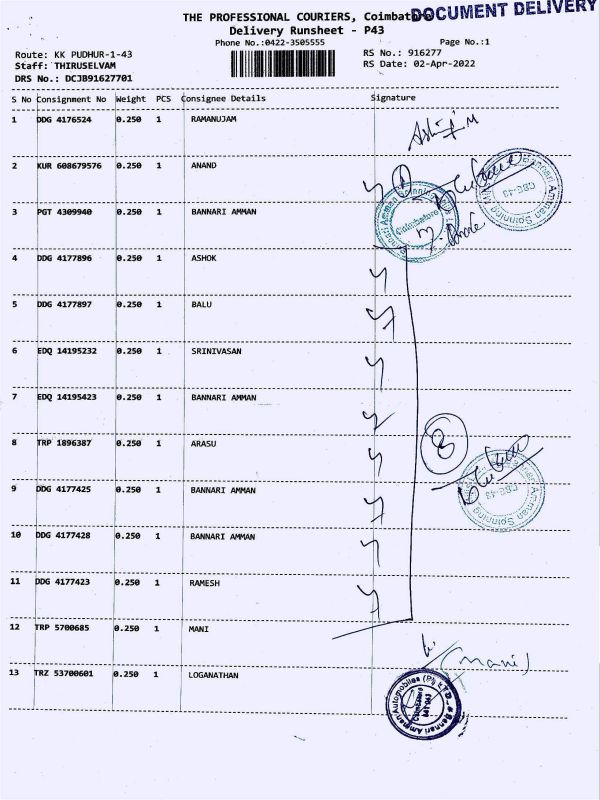 THE PROFESSIONAL COURIERS, Coimbatore
DOCUMENT DELIVERY
Delivery Runsheet - P43
Phone No.:0422-3505555
Page No.:1
Route: KK PUDHUR-1-43
RS No.: 916277
Staff: THIRUSELVAM
RS Date: 02-Apr-2022
DRS No.: DCJB91627701
S No Consignment No Weight PCS Consignee Details Signature
1 DDG 4176524 0.250 1 RAMANUJAM
2 KUR 608679576 0.250 1 ANAND
3 PGT 4309940 0.250 1 BANNARI AMMAN
4 DDG 4177896 0.250 1 ASHOK
5 DDG 4177897 0.250 1 BALU
6 EDQ 14195232 0.250 1 SRINIVASAN
7 EDQ 14195423 0.250 1 BANNARI AMMAN
8 TRP 1896387 0.250 1 ARASU
8
9 DDG 4177425 0.250 1 BANNARI AMMAN
10 DDG 4177428 0.250 1 BANNARI AMMAN
11 DDG 4177423 0.250 1 RAMESH
12 TRP 5700685 0.250 1 MANI
(Mani)
13 TRZ 53700601 0.250 1 LOGANATHAN
Bannari Amman Automobiles (P) LTD.